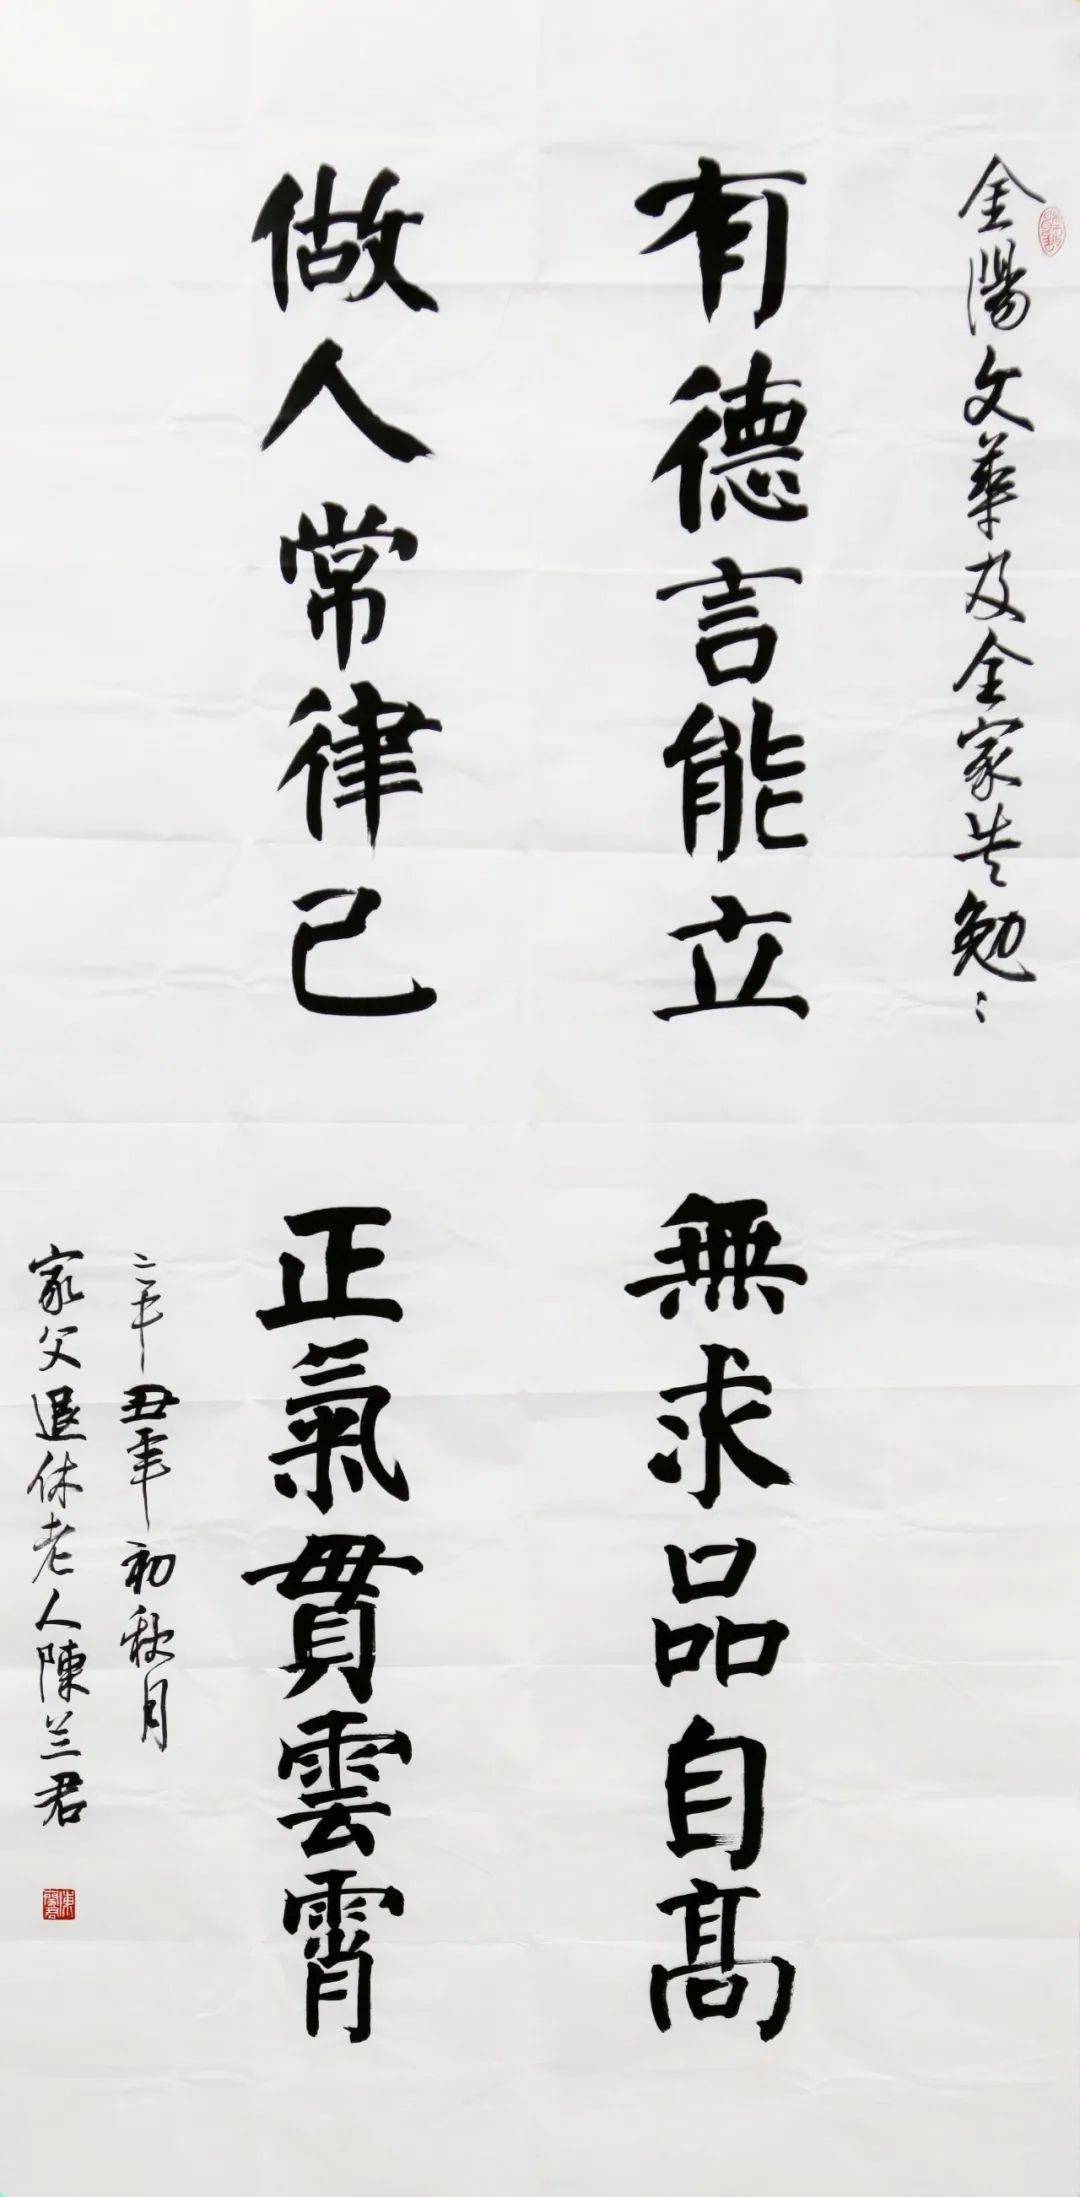 金陽文華及全家共勉：
有德言能立 無求品自高
做人常律己 正氣貫雲霄
辛丑年初秋月
家父退休老人陳兰君